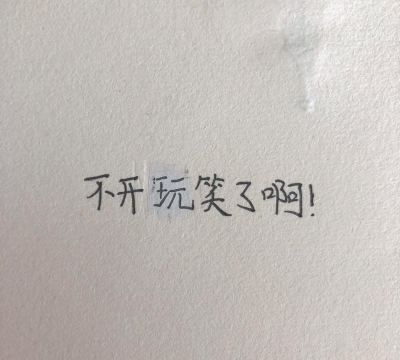 不开玩笑了啊!